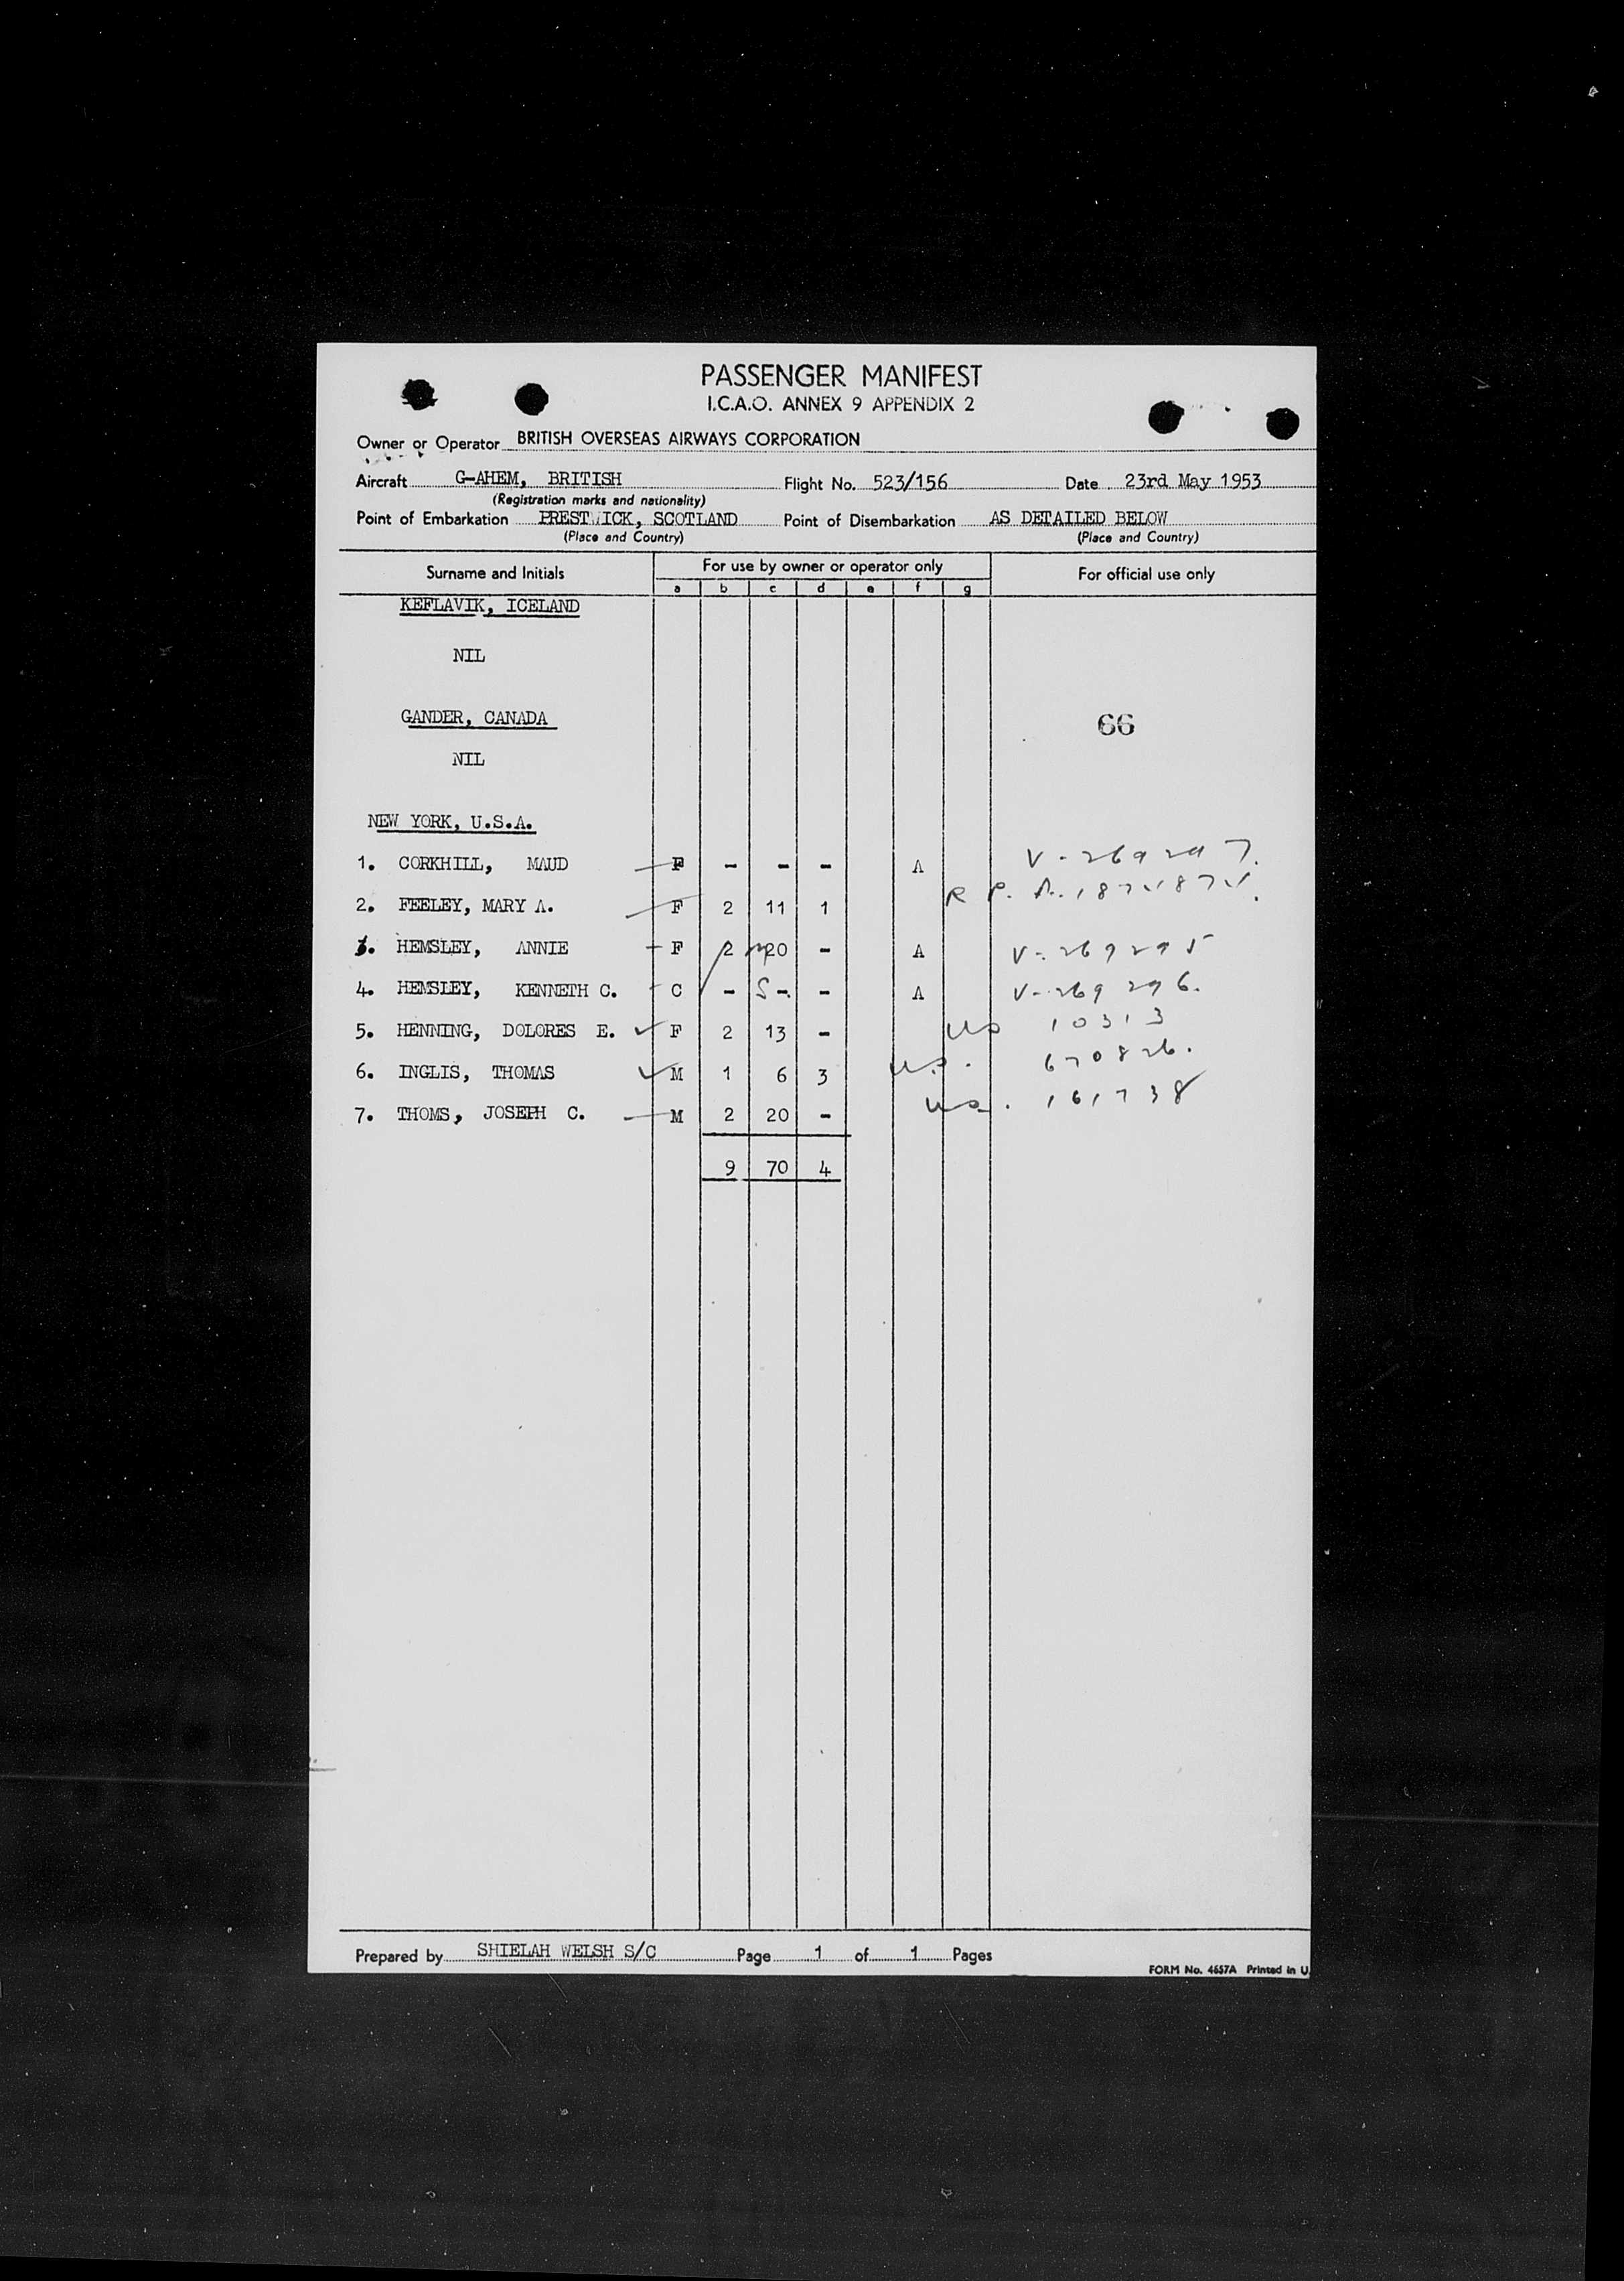 PASSENGER MANIFEST
I.C.A.O. ANNEX 9 APPENDIX 2
Owner or Operator BRITISH OVERSEAS AIRWAYS CORPORATION
Aircraft G-AHEM, BRITISH Flight No. 523/156 Date 23rd May 1953
(Registration marks and nationality)
Point of Embarkation PRESTWICK, SCOTLAND Point of Disembarkation AS DETAILED BELOW
(Place and Country) (Place and Country)
Surname and Initials For use by owner or operator only For official use only
a b c d e f g
KEFLAVIK, ICELAND
NIL
GANDER, CANADA 66
NIL
NEW YORK, U.S.A.
1. CORKHILL, MAUD F - - - A V-269297.
2. FEELEY, MARY A. F 2 11 1 R P.
3. HEMSLEY, ANNIE F 2 20 - A V-269295
4. HEMSLEY, KENNETH C. C - - - A V-269296.
5. HENNING, DOLORES E. F 2 13 - US 10313
6. INGLIS, THOMAS M 1 6 3 U.S. 670826.
7. THOMS, JOSEPH C. M 2 20 - US. 161738
9 70 4
Prepared by SHIELAH WELSH S/C Page 1 of 1 Pages
FORM No. 4657A Printed in U.